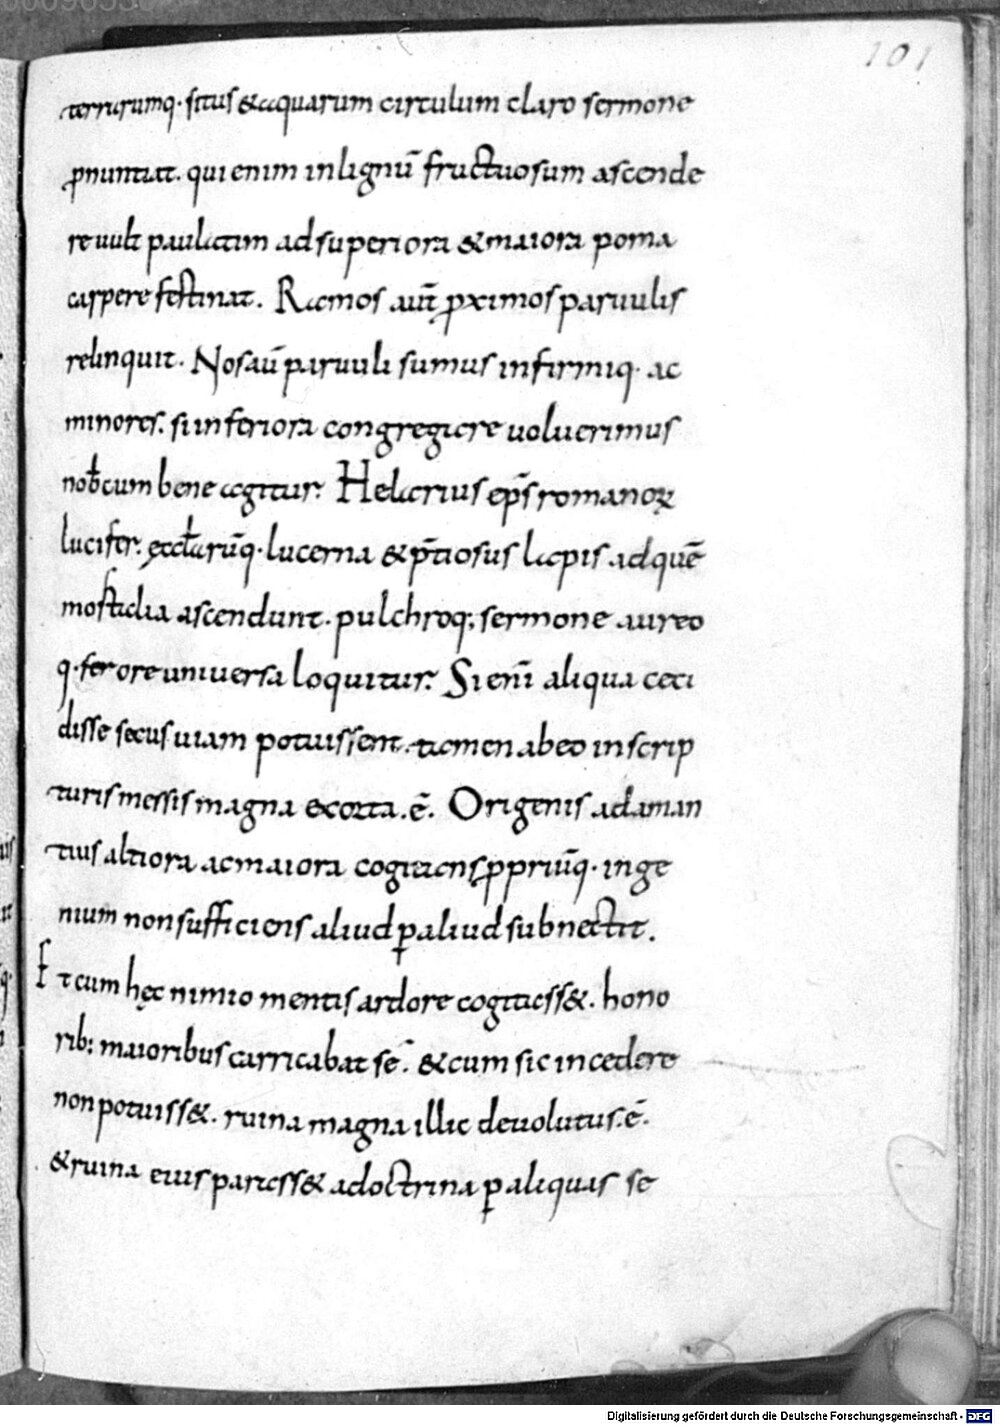 101
terrarumq· situs &aquarum circulum claro sermone
ꝓnuntiat. qui enim inlignū fructuosum ascende
re uult paulatim ad superiora &maiora poma
carpere festinat. Ramos aut̄ ꝓximos paruulis
relinquit. Nos aū paruuli sumus infirmiq· ac
minores. si inferiora congregare uoluerimus
nob̄cum bene agitur. Helarius ep̄s romanoꝝ
lucifer. ęccl̄arūq· lucerna &p̄tiosus lapis adquē
mostidia ascendunt. pulchroq; sermone aureo
q·fer ore uniuersa loquitur. Si enī aliqua ceci
disse secus uiam potuissent. tamen ab eo inscrip
turis messis magna exorta.ē. Origenis adaman
tius altiora ac maiora cogitans ꝓpriūq· inge
nium non sufficiens aliud ꝑ aliud subnectit.
Et cum hęc nimio mentis ardore cogitass&. hono
rib; maioribus carricabat se. &cum sic incedere
non potuiss&. ruina magna illic deuolutus.ē.
&ruina eius pariess& adoctrina ꝑ aliquas se
Digitalisierung gefördert durch die Deutsche Forschungsgemeinschaft - DFG